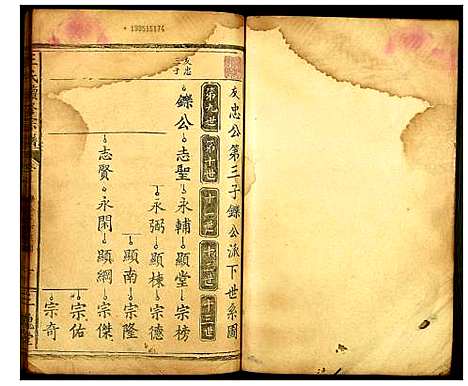 199515174
友忠公第三子鑠公派下世系圖
第九世 第十世 十一世 十二世 十三世
友忠三子
鑠公 志聖 永輔 顯堂 宗榜
永弼 顯棟 宗德
顯南 宗隆
志賢 永閑 顯綱 宗傑
宗佑
宗奇